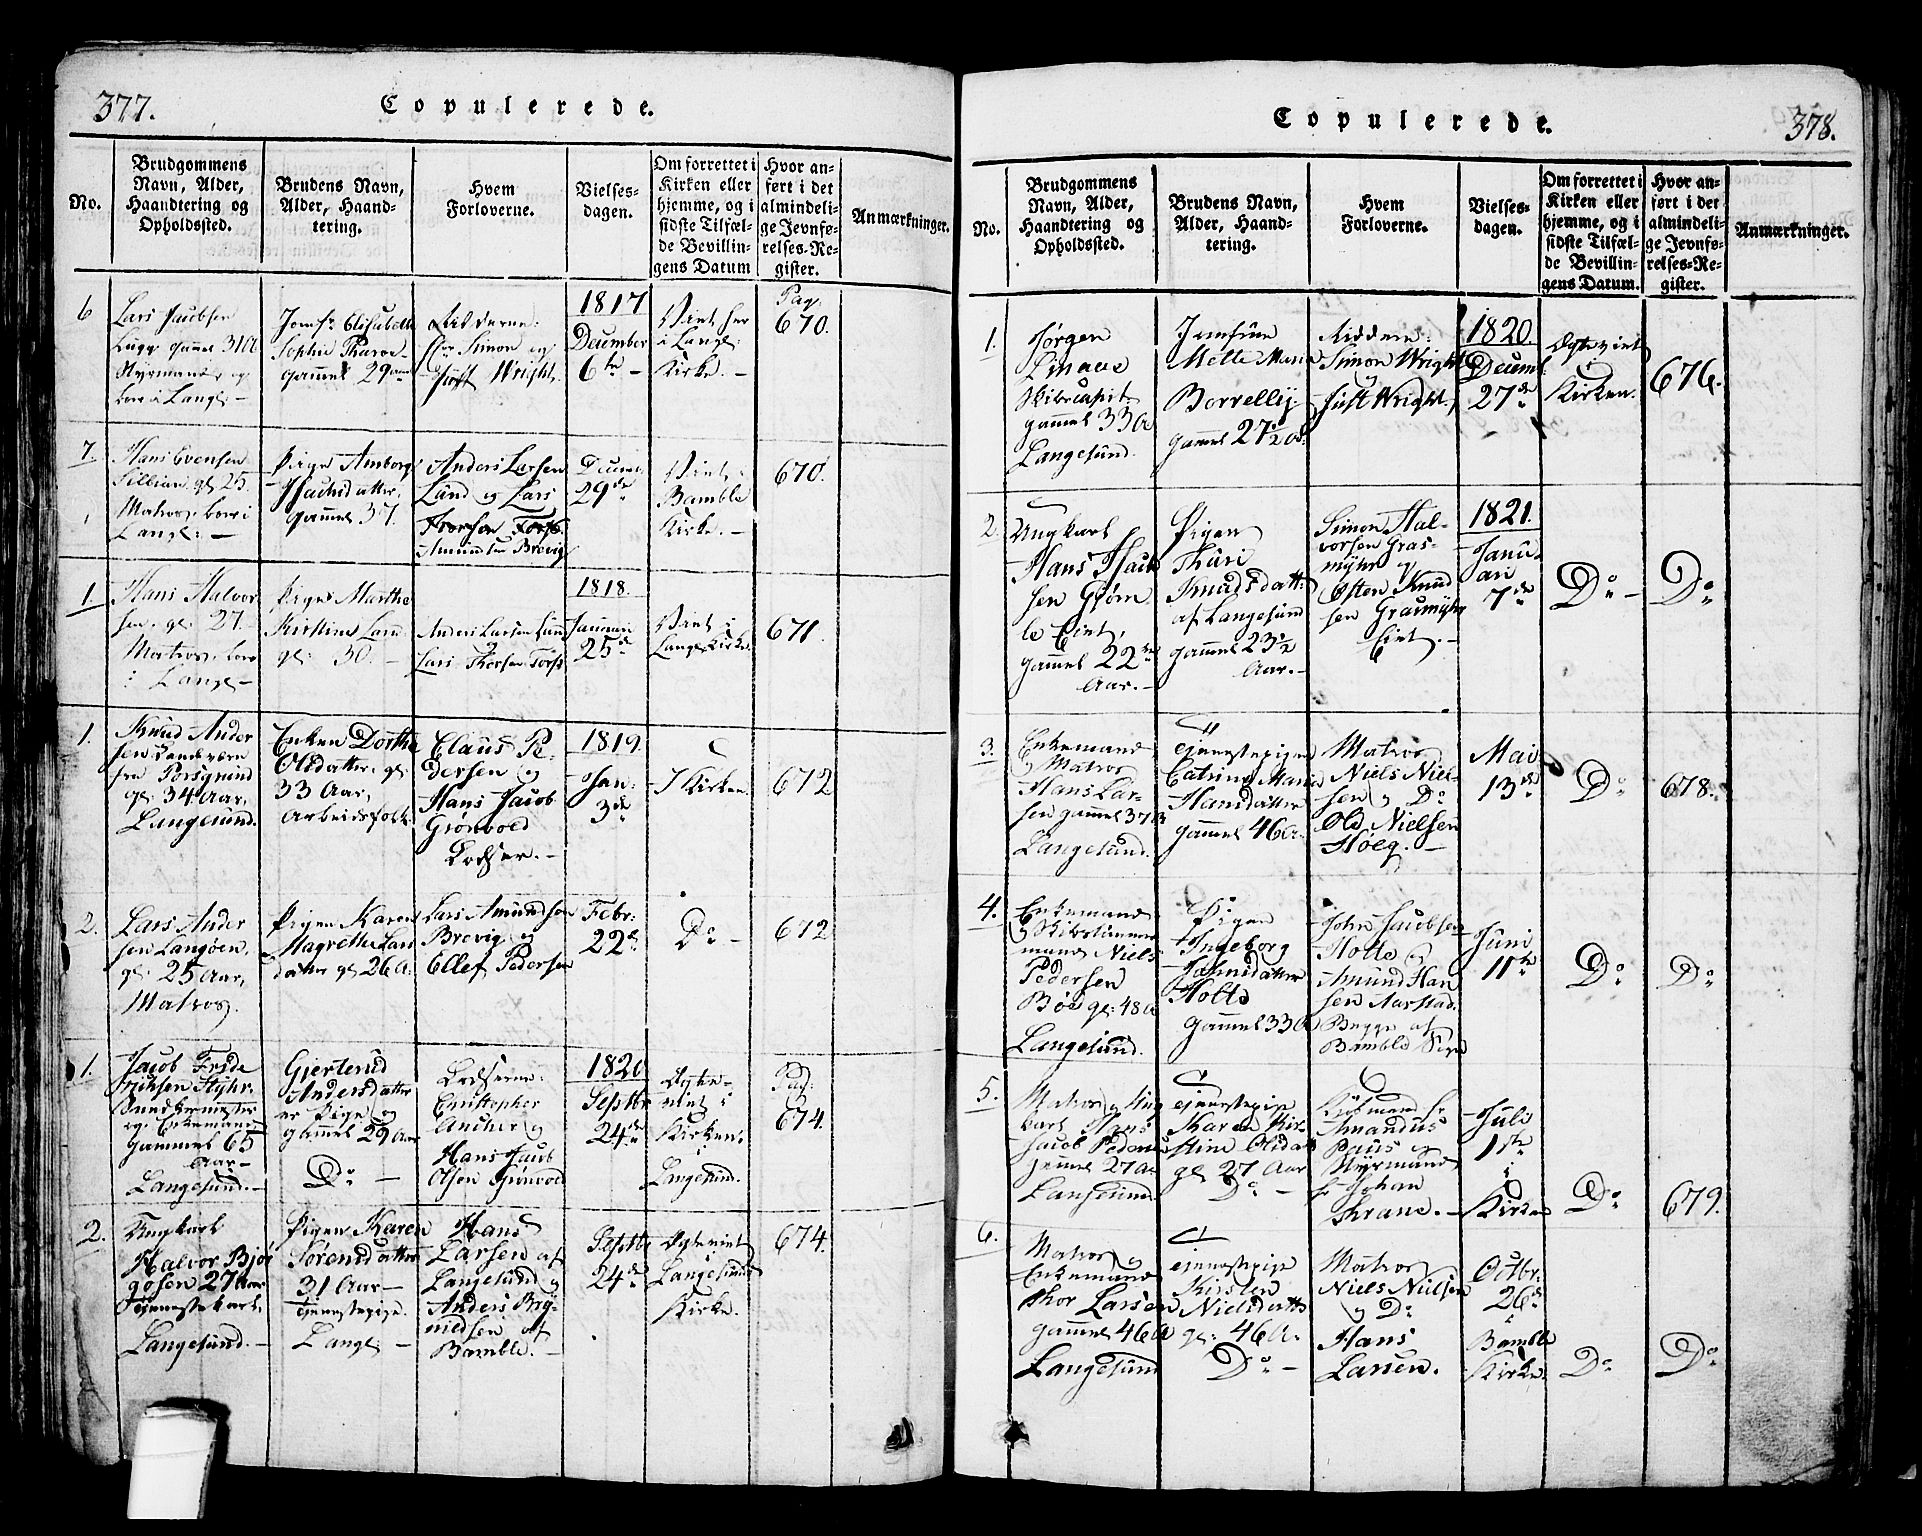 377.
Copulerede.
No.
Brudgommens
Navn, Alder,
Haandtering og
Opholdssted.
Brudens Navn,
Alder, Haand-
tering.
Hvem
Forloverne.
Vielses-
dagen.
Om forrettet i
Kirken eller
hjemme, og i
sidste Tilfæl-
de Bevillin-
gens Datum
Hvor an-
ført i det
almindeli-
ge Jevnfø-
relses-Re-
gister.
Anmærkninger.
6
Lars Jacobsen
gammel 31
Styrmand, og
i Lange: -
Jomfr Elisabeth
Sophie
gammel 29
Simon og
Just Wright.
1817
December
6te -
Viet her
i Lange:
Kirke. -
Pag:
670.
7.
Hans Evensen
gl. 25.
Matros, i
Lange: -
Pigen Amborg
gammel 37.
Anders Larsen
Lund og Lars
Amundsen Brevig
Decemr
29de
Viet i
Bamble
Kirke. -
670.
1.
Hans Halvor
sen. gl: 27.
Matros,
i Lange -
Pigen Marthe
Kirstine
gl: 30. -
Anders Larsen Lund
og
Lars Thorsen
1818.
Januari
25de
Viet i
Lange Kirke.
671.
1.
Knud Ander
sen
fra Porsgrund
gl: 34 Aar,
Langesund.
Enken Dorthe
Olsdatter gl:
33 Aar,
Arbeidsfolk
Claus Pe-
dersen og
Hans Jacob
Grönvold
Lodser. -
1819.
Jan:
3de
I Kirken.
672
2.
Lars Ander
sen Langøen.
gl: 25 Aar,
Matros.
Pigen Karen
Magrethe Lars
datter gl 26 A:
Lars Amundsen
Brevig og
Ellef Pedersen
Febr:
22de
Do -
672
1.
Jacob Fride
riksen
og Enkemand
gammel 65
Aar -
Langesund. -
Gjertrud
Andersdatter
er Pige og
gammel 29 Aar
Do -
Lodserne:
Christopher
Ancher og
Hans Jacob
Olsen Grönvold
1820.
Septbr
24de
Ægte-
viet i
Kirken.
Langesund.
Pag:
674.
2.
Ungkarl
Halvor Bjør
gosen 27 Aar
Tjenestekarl.
Langesund. -
Pigen Karen
Sørensdatter
31 Aar -
Tjenestepige.
Lange:
Hans
Larsen af
Langesund og
Anders
af
Bamble. -
Septbr
24de
Ægteviet
Langesund
Kirke.
674.
378.
Copulerede.
No.
Brudgommens
Navn, Alder,
Haandtering og
Opholdssted.
Brudens Navn,
Alder, Haand-
tering.
Hvem
Forloverne.
Vielses-
dagen.
Om forrettet i
Kirken eller
hjemme, og i
sidste Tilfæl-
de Bevillin-
gens Datum.
Hvor an-
ført i det
almindeli-
ge Jevnfø-
relses-Re-
gister.
Anmærkninger.
1.
Jørgen
Linaae
Skibscapit.
gammel 33 A
Langesund.
Jomfrue
Mette Maria
Borrelly.
gammel 27 1/2 A:
Simon Wright
og
Just Wright.
1820.
Decemb:
27de
Ægteviet
i
Kirken.
676.
2.
Ungkarl
Hans Jacob
sen
gammel 22
Aar. -
Pigen
Thuri
Knudsdatt:
af Langesund
gammel 23 1/2
Aar. -
Simon Hal-
vorsen Gras-
myhr og
Osten Knud
sen Grasmyhr
1821.
Janu-
ari
7de
Do -
Do
3.
Enkemand
og Matros
Hans Lar-
sen gammel 37
Langesund.
Tjenestepigen
Catrine Maria
Hansdatter
gammel 46 A:
Matros
Niels Niel-
sen og Do
Old Nielsen
Høeg. -
Mai
13de
Do
678.
4.
Enkemand
og Skibstimmer
mand Niels
Pedersen
Böe gl: 48 A
Langesund.
Pigen
Ingeborg
Johnsdatter
Holte
gammel 33 A
John Jacobsen
Holte og
Amund Han
sen Aarstad.
Begge af
Bamble Sogn
Juni
11te
Do
Do
5.
Matros og Ung
karl Hans
Jacob Pedersen
gammel 27 A
Langesund.
Tjenestepige
Karen Kir-
stine Olsdatt
gl 27 Aar
Do -
Kjøbmand Hr
Amandus
Paus og
Styrmand
Hr Johan
Krane. -
Juli
1ste
i
Kirken
Do
679.
6.
Matros og
Enkemand
Thor Larsen
gammel 46 A
Langesund
Tjenestepige
Kirsten
Nielsdatter
gl: 46 A:
Do -
Matros
Niels Nielsen
og Do
Hans
Larsen.
Octbr.
26de
Bamble
Kirke.
Do
Do